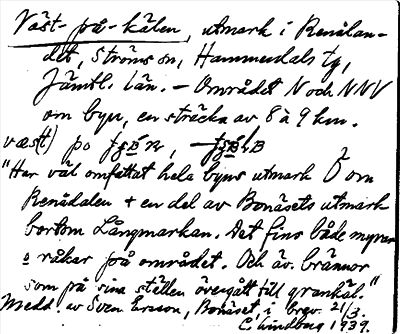 Väst-på-kälen, utmark i Renålan-
det, Ströms sn, Hammerdals tg,
Jämtl. län. – Området N och NNV
om byn, en sträcka av 8 à 9 km.
väst) po
"Har väl omfattat hela byns utmark Ö om
Renådalen + en del av Bonäsets utmark
bortom Långmarkan. Det fins både myrar
o råkar på området. Och äv. brännor
som på sina ställen övergått till grankäl."
Medd. av Sven Ersson, Bonäset, i brev 21/3.
C. Lindberg 1939.